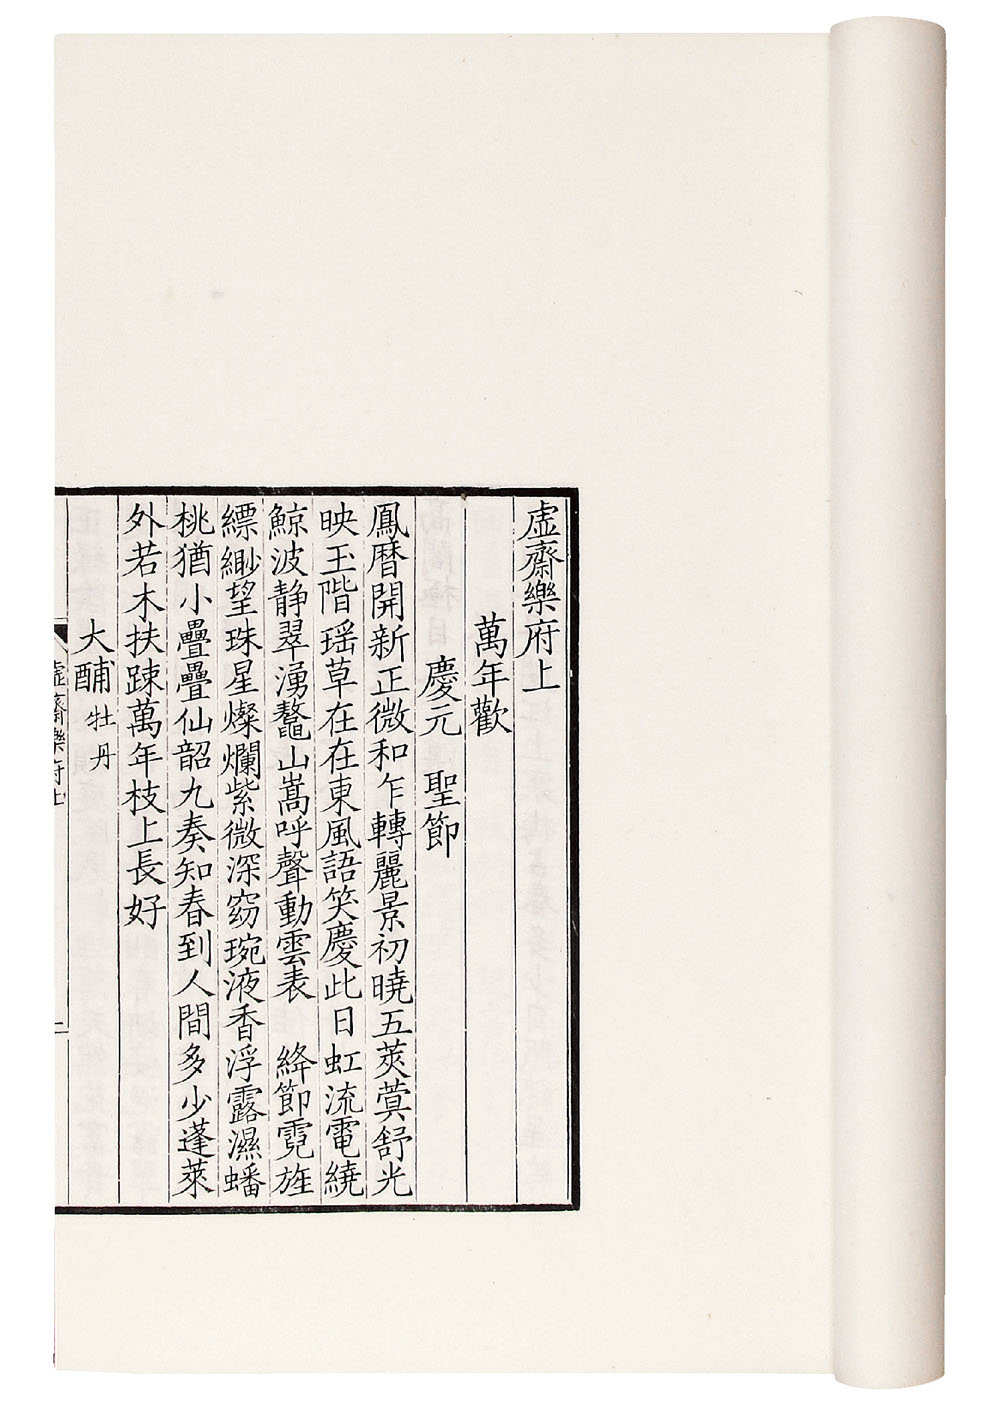 虛齋樂府上
萬年歡
慶元　聖節
鳳曆開新正微和乍轉麗景初曉五莢蓂舒光
映玉階瑶草在在東風語笑慶此日虹流電繞
鯨波静翠湧鼇山嵩呼聲動雲表　絳節霓旌
縹緲望珠星燦爛紫微深窈琬液香浮露濕蟠
桃猶小疊疊仙韶九奏知春到人間多少蓬萊
外若木扶踈萬年枝上長好
大酺 牡丹
虛齋樂府上
一